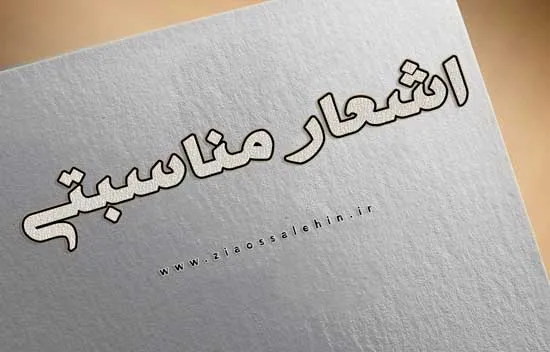 اشعار مناسبتی
www.ziaossalehin.ir